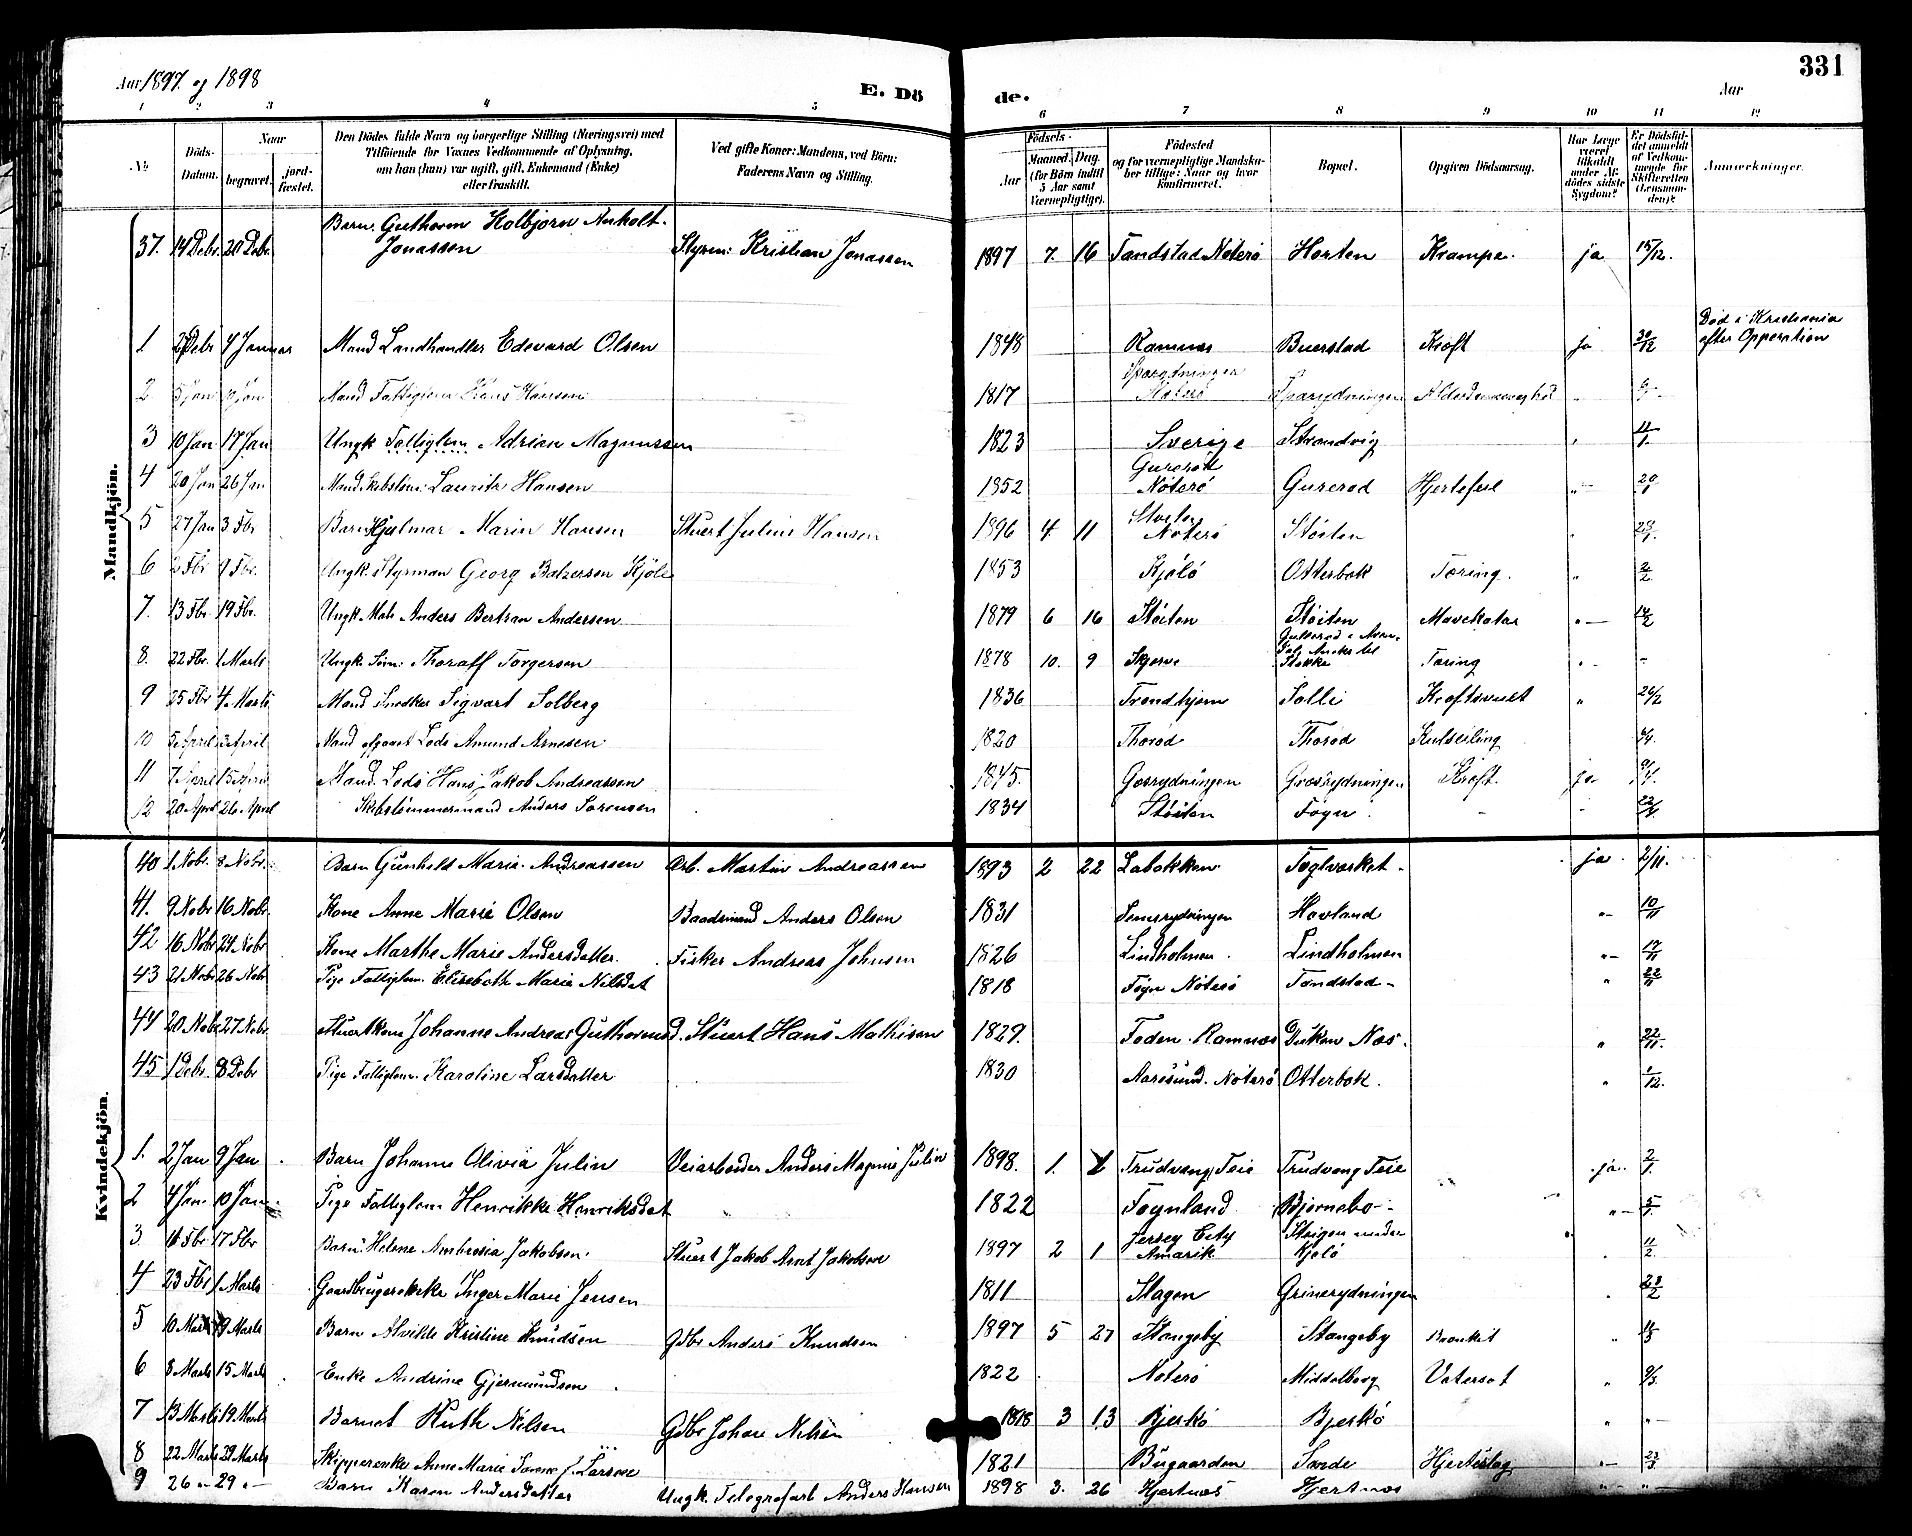 331
Aar 1897 og 1898
E. Dö de.
Aar
1 2 3 4 5 6 7 8 9 10 11 12
No
Döds-Datum.
Naar begravet. jord-fæstet.
Den Dödes fulde Navn og borgerlige Stilling (Næringsvei) med Tilföiende for Voxnes Vedkommende af Oplysning, om han (hun) var ugift, gift, Enkemand (Enke) eller fraskilt.
Ved gifte Koner: Mandens, ved Börn: Faderens Navn og Stilling.
Födsels-
Aar
Maaned. Dag. (for Börn indtil 5 Aar samt Værnepligtige).
Födested og for værnepligtige Mandska-ber tillige: Naar og hvor konfirmeret.
Bopæl.
Opgiven Dödsaarsag.
Har Læge været tilkaldt under Af-dödes sidste Sygdom?
Er Dödsfal-det anmeldt af Vedkom-mende for Skifteretten (Lensman-den)?
Anmærkninger.
Mandkjön.
37. 14 Debr. 20 Debr. Barn. Guthorm Kolbjørn Anholt Jonassen Styrm: Kristian Jonassen 1897 7. 16 Tandstad Nøterø Horten Krampe. ja 15/12.
1 4 Januar Mand Landhandler Edevard Olsen 1848 Ramnes Buerstad Kræft ja 30/12 Død i Kristiania efter Opperation
2. 5 Jan Mand Fattiglem Hans Hansen 1817 Nøterø
3 10 Jan 17 Jan Ungk Fattiglem Adrian Magnussen 1823 Sverige Strandvig 11/1
4 20 Jan 26 Jan Mand Skibstøm: Lauritz Hansen 1852 Nøterø Gurerød Hjertefeil 20/1
5 27 Jan 3 Fbr Barn Hjalmar Marin Hansen Stuert Julius Hansen 1896 4. 11 Nøterø Støiten
6 2 Fbr 9 Fbr. Ungk. Styrman Georg Balzersen Kjøle 1853 Kjøløˊ Otterbæk Tæring. 2/2.
7. 13 Fbr. 19 Fbr. Ungk. Anders Bertran Andersen 1879 6 16 Støiten Støiten Mavekatar 14/2
8. 22 Fbr. 1 Marts Ungk. Thoralf Torgersen 1878 10. 9 Stokke Tæring
9 25 Fbr 4. Marts Mand Snedker Sigvart Solberg 1836 Trondhjem Solli 26/2
10 5 April Mand Lods Amund Arnesen 1820 Thorød Thorød
11 7 April 15 April Mand. Lods Hans Jakob Andreassen 1845. Kræft. ja 9/4.
12 20 April 26 April Skibstømmermand Anders Sørensen 1834 Støiten Føyn 22/4
Kvindekjön.
40 1 Nobr. 8 Nobr. Barn Gunhild Marie Andreassen Arb. Martin Andreassen 1893 2 22 Labakken Teglværket ja 2/11.
41. 9 Nobr 16 Nobr. Kone Anne Marie Olsen Baadsmand Anders Olsen 1831 Hovland 10/11
42 16 Nobr 24 Nobr Kone Marthe Marie Andersdatter. Fisker Andreas Johnsen 1826 Lindholmen. Lindholmen 17/11
43 21 Nobr 26 Nobr Pige Fattiglem. Elisabeth Marie Nilsdat 1818 Føyn Nøterø Tandstad 22/11
44 20 Nobr 27 Nobr. Stuertkone Johanne Andrea Guthormsd. Stuert Hans Mathisen 1829. Foden. Ramnes Næs. 22/11.
45 1 Debr. 8 Debr Pige Fattiglem. Karoline Larsdatter 1830 Aarøsund. Nøterø Otterbæk. 1/12.
1. 2 Jan 9 Jan Barn Johanne Olivia Julin Veiarbeider Anders Magnus Julin 1898. 1. Trudvang, Teie Trudvang Teie ja 2/1.
2 4 Jan 10 Jan Pige Fattiglem Henrikke Henriksdat 1822 Føynland Bjørnebo 5/1.
3 17 Fbr Barn: Helene Ambrosia Jakobsen. Stuert Jakob Arnt Jakobsen 1897 2 1 Jersey City Amerik Kjøløˊ 11/2.
4 23 Fbr 1 Marts Gaardbrugerenke Inger Marie Jensen 1811 Slagen Grinerydningen 23/2
5 10 Marts Marts Barn Alvilde Kristine Knudsen Gdbr Anders Knudsen 1897 5 27 Stangeby Stangeby Bronkit 11/3
6 8 Marts 15 Marts Enke Andrine Gjermundsen 1822 Nøterø Middelborg Vatersot 9/3.
7 13 Marts 19 Marts Barnet Ruth Nilsen Gdbr Johan Nilsen 3 13 Bjerkø Bjerkø
8 22 Marts 29 Marts Skipperenke Anne Marie 1821 Bugaarden Sande Hjerteslag 23/3
9 26 29 Barn Karen Andersdatter Ungk. Telegrafart Anders Hansen 1898 3. 26 Hjertnæs Hjertnæs